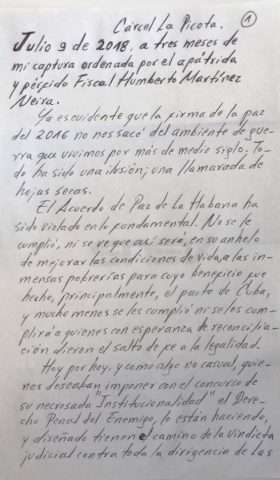 Cárcel La Picota. 1
Julio 9 de 2018, a tres meses de
mi captura ordenada por el apátrida
y pérfido Fiscal Humberto Martínez
Neira.
Ya es evidente que la firma de la paz
del 2016 no nos sacó del ambiente de gue-
rra que vivimos por más de medio siglo. To-
do ha sido una ilusión; una llamarada de
hojas secas.
El Acuerdo de Paz de La Habana ha
sido violado en lo fundamental. No se le
cumplió, ni se ve que así será, en su anhelo
de mejorar las condiciones de vida, a las in-
mensas pobrerías para cuyo beneficio fue
hecho, principalmente, el pacto de Cuba,
y mucho menos se les cumplió ni se les cum-
plirá a quienes con esperanza de reconcilia-
ción dieron el salto de fe a la legalidad.
Hoy por hoy, y como algo no casual, quie-
nes deseaban imponer con el concurso de
su necrosada "Institucionalidad" el Dere-
cho Penal del Enemigo, lo están haciendo,
y diseñado tienen el camino de la vindicta
judicial contra toda la dirigencia de las